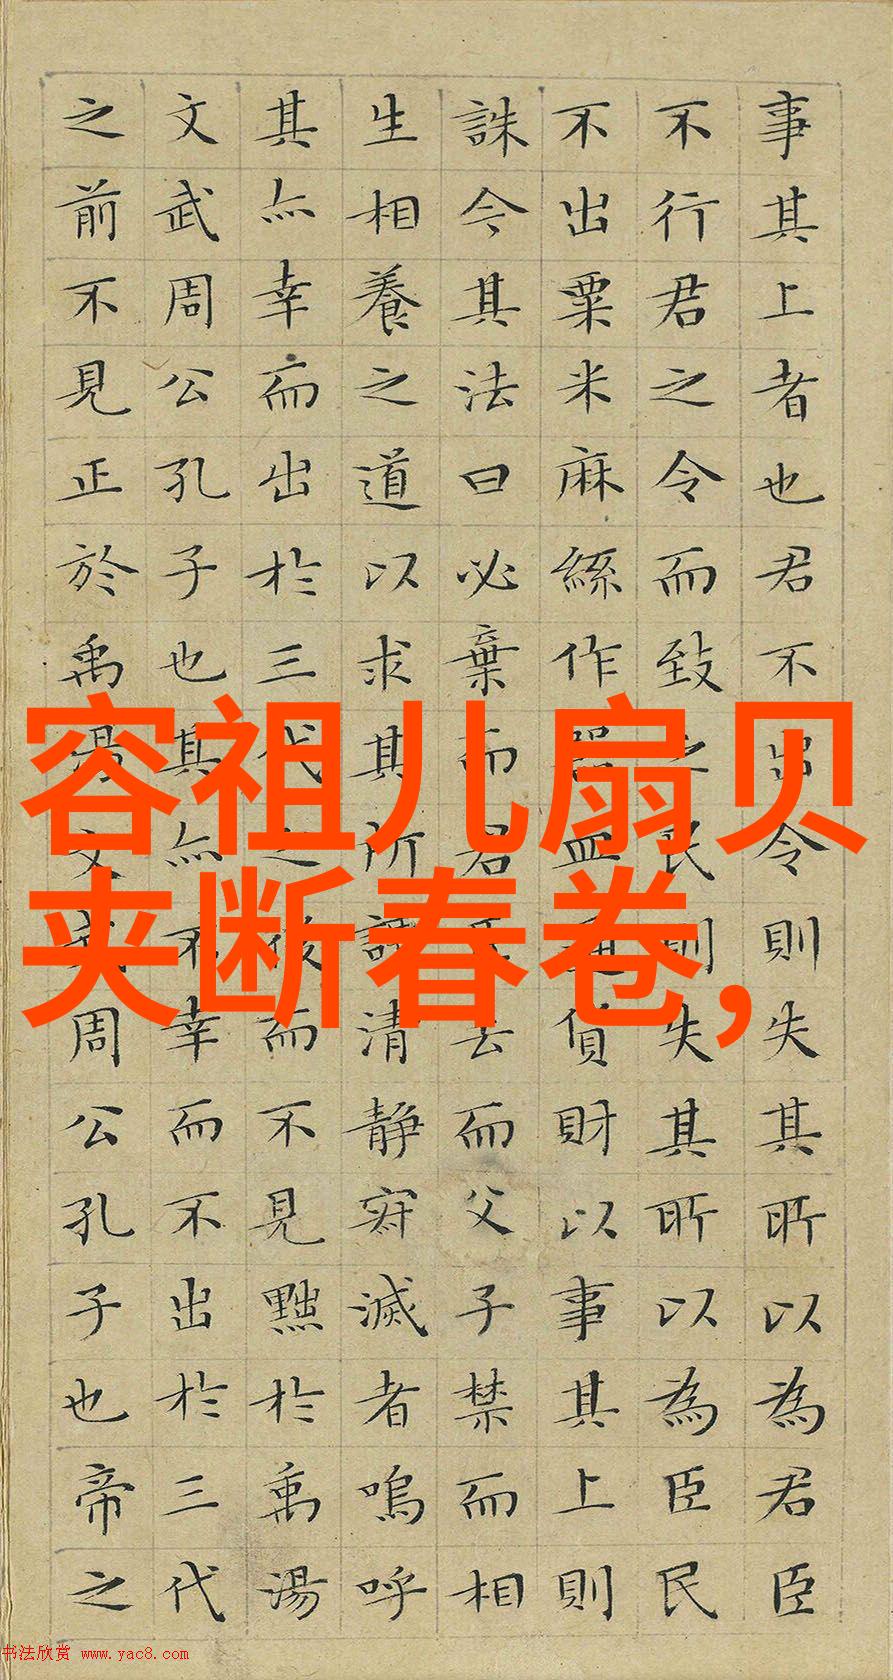 容祖儿扇贝
夹断春卷,
事其上者也君不出令則失其所以為君臣
不行君之令而致之民則失其所以為臣民
不出粟米麻絲作器皿通貨財以事其上則
誅今其法曰必棄而君臣去而父子禁而相
生相養之道以求其所謂清静寂滅者嗚呼
其亦幸而出於三代之後而不見黜於禹湯
文武周公孔子也其亦不幸而不出於三代
之前不見正於禹湯文武周公孔子也帝之
书法欣赏 www.yac8.com